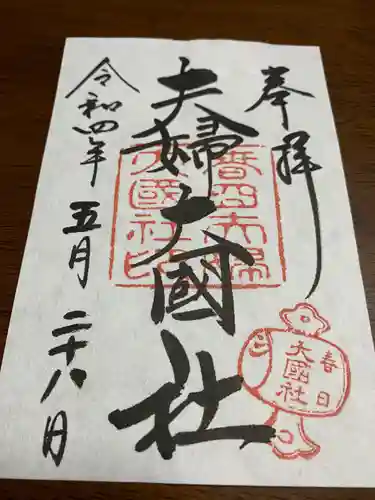 奉拝
夫婦大國社
春日夫婦
大國社印
令和四年
五月二十八日
春日
大國社